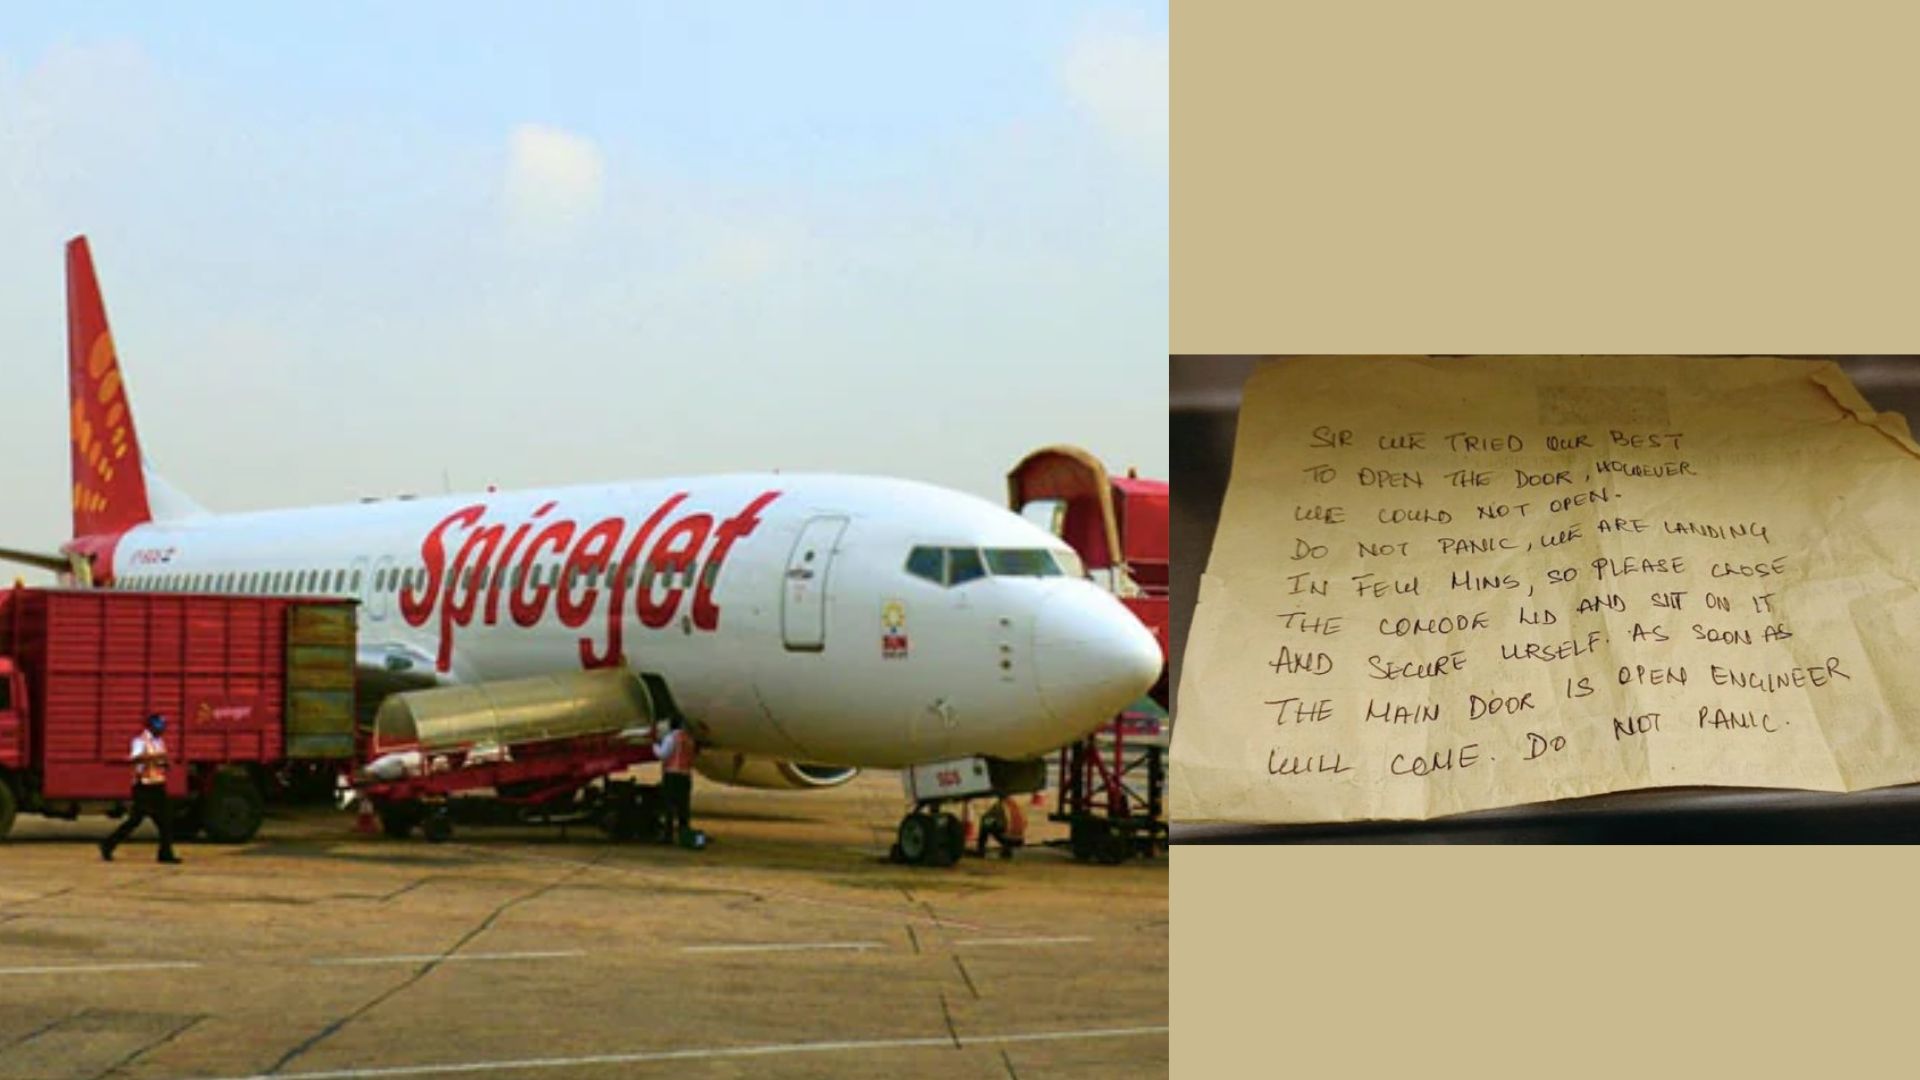 SpiceJet
SGS
SIR WE TRIED OUR BEST
TO OPEN THE DOOR, HOWEVER
WE COULD NOT OPEN.
DO NOT PANIC, WE ARE LANDING
IN FEW MINS, SO PLEASE CLOSE
THE COMODE LID AND SIT ON IT
AND SECURE URSELF. AS SOON AS
THE MAIN DOOR IS OPEN ENGINEER
WILL COME. DO NOT PANIC.